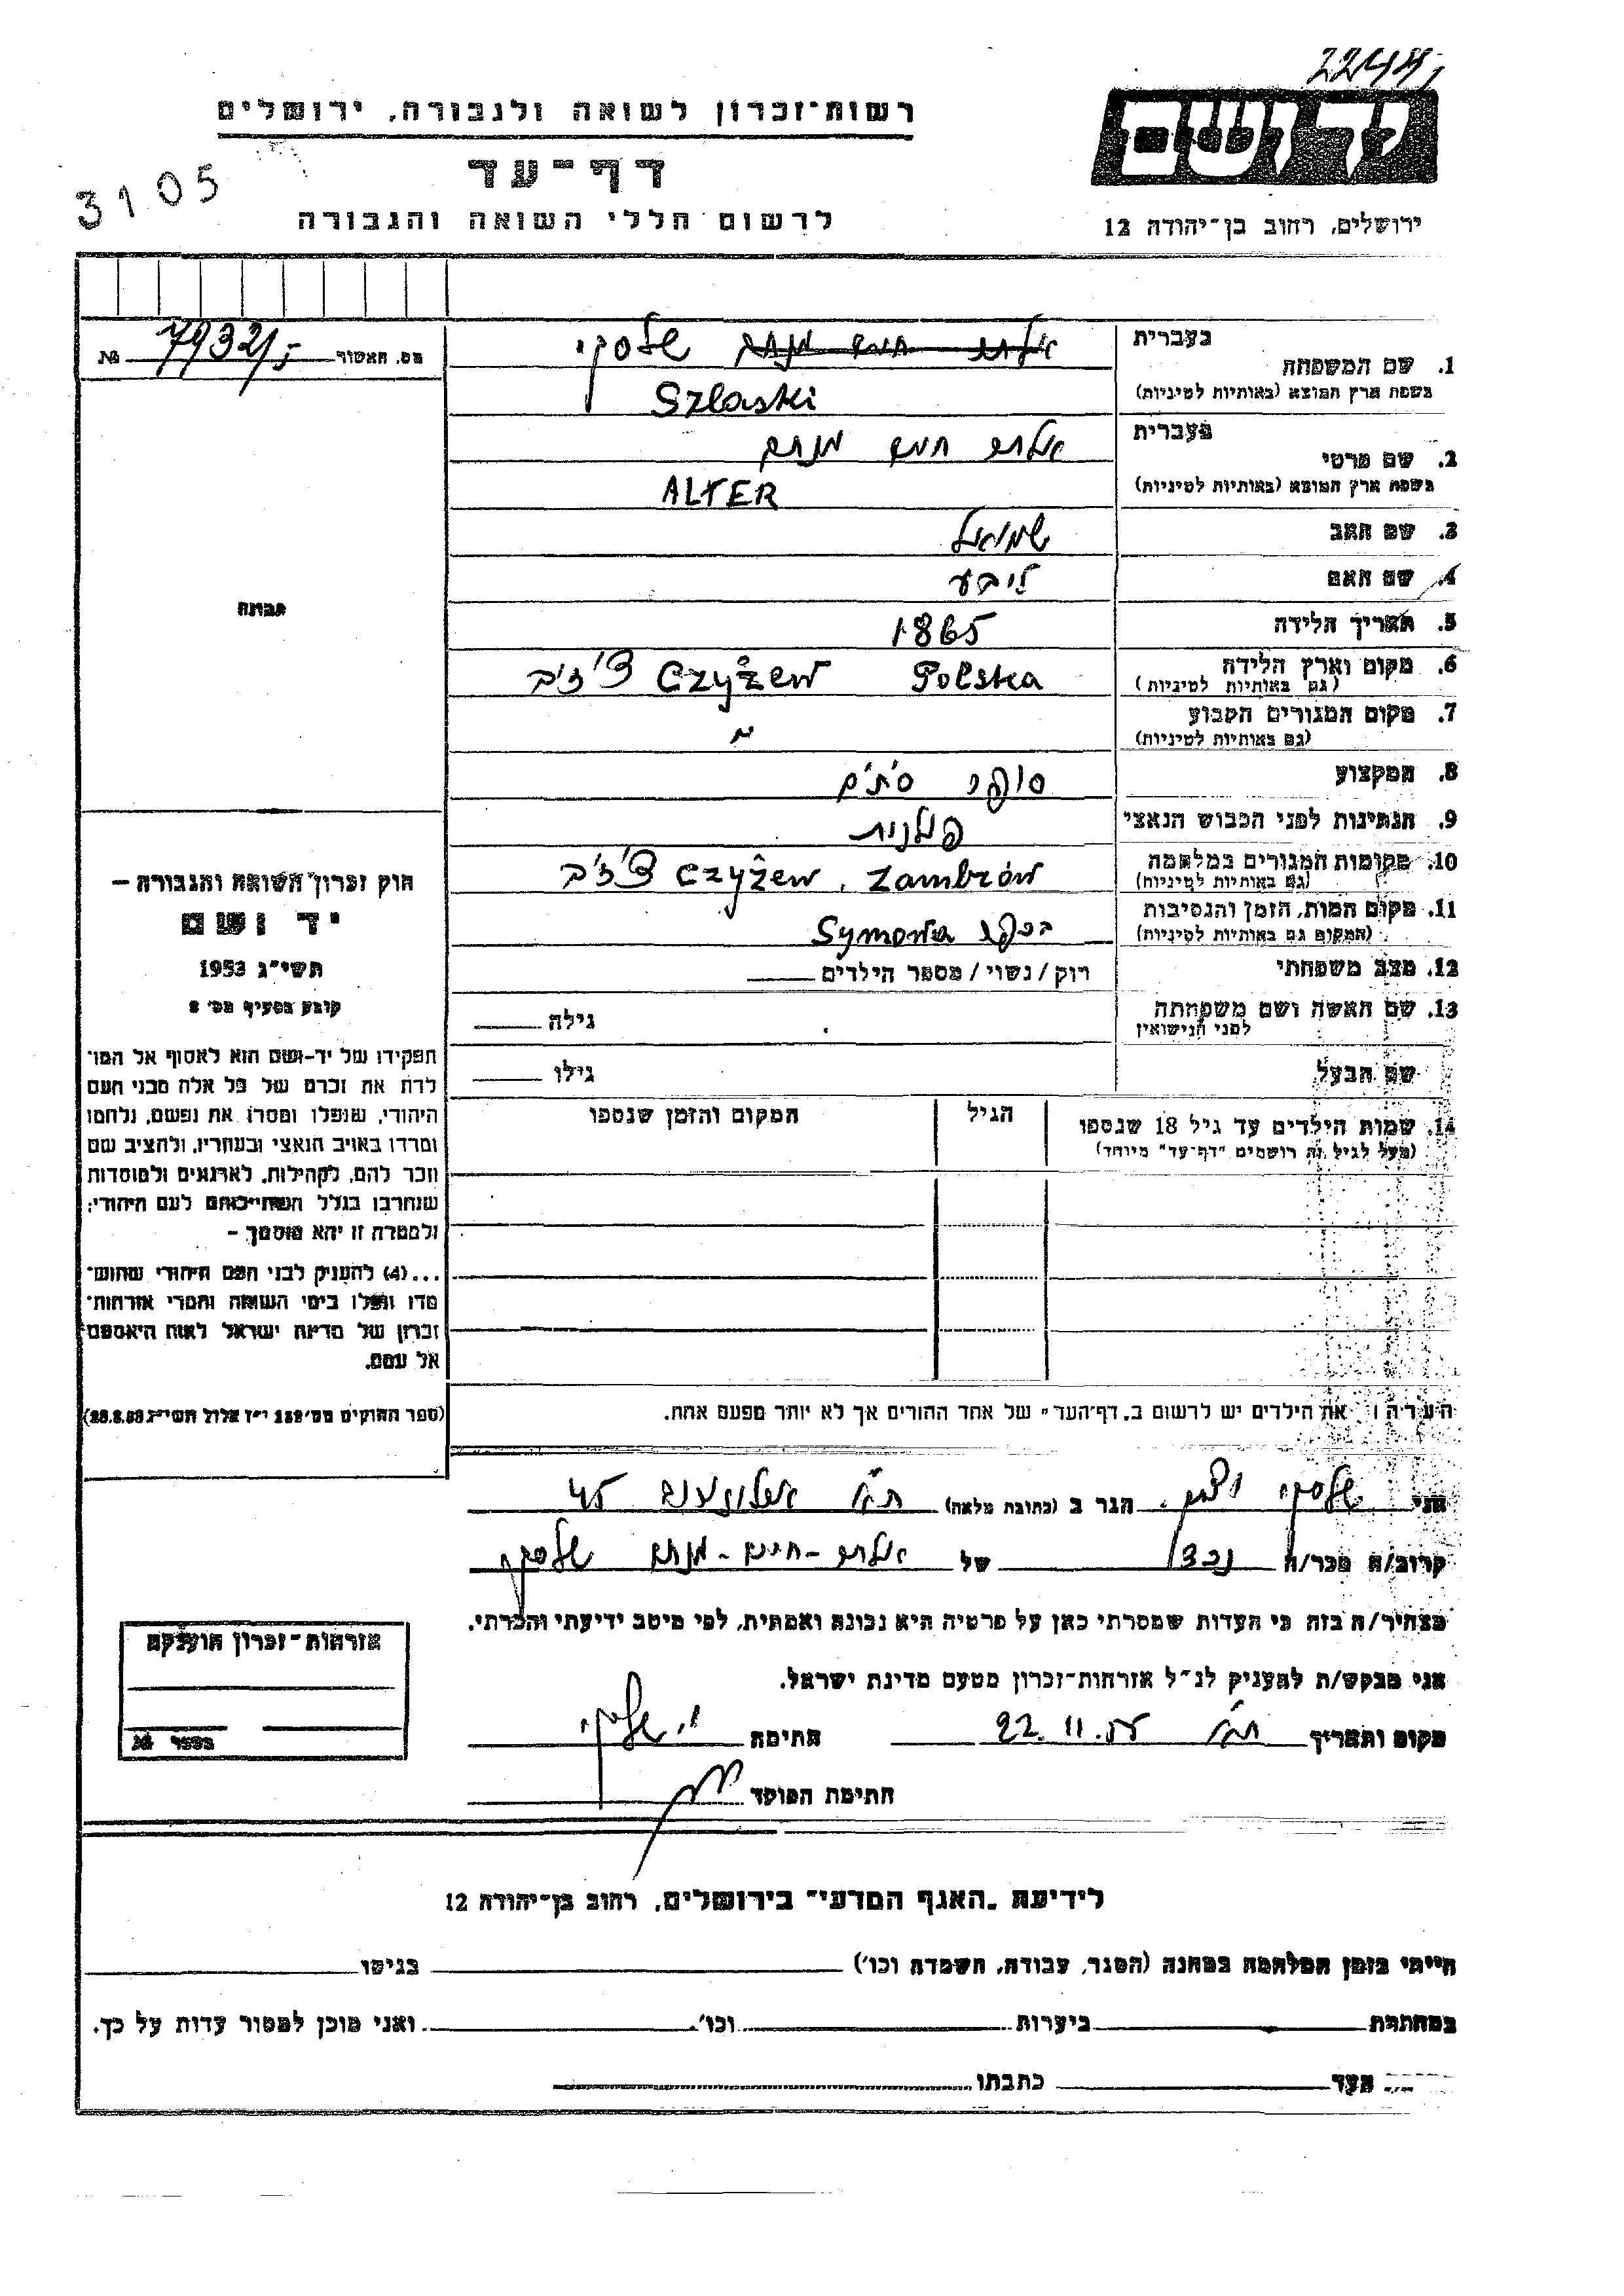 2244
רשות-זכרון לשואה ולגבורה, ירושלים
דף-עד
3105
לרשום חללי השואה והגבורה
ירושלים, רחוב בן-יהודה 12
מס. האשור № 7932/-
1. שם המשפחה
בעברית אלתר חיים מנחם שלסקי
בשפת ארץ המוצא (באותיות לטיניות) Szlaski
2. שם פרטי
בעברית אלתר חיים מנחם
בשפת ארץ המוצא (באותיות לטיניות) ALTER
3. שם האב שמואל
4. שם האם ליבע
5. תאריך הלידה 1865
6. מקום וארץ הלידה (גם באותיות לטיניות) Polska Czyżew צ'יז'ב
7. מקום המגורים הקבוע (גם באותיות לטיניות) "
8. המקצוע סופר סת"ם
9. הנתינות לפני הכבוש הנאצי פולנית
10. מקומות המגורים במלחמה (גם באותיות לטיניות) Zambrów, Czyżew צ'יז'ב
11. מקום המות, הזמן והנסיבות (המקום גם באותיות לטיניות)
12. מצב משפחתי רוק / נשוי / מספר הילדים
13. שם האשה ושם משפחתה לפני הנישואין גילה
שם הבעל גילו
14. שמות הילדים עד גיל 18 שנספו הגיל המקום והזמן שנספו
(מעל לגיל זה רושמים "דף-עד" מיוחד)
הערה: את הילדים יש לרשום ב"דף-העד" של אחד ההורים אך לא יותר מפעם אחת.
תמונה
חוק זכרון השואה והגבורה –
יד ושם
תשי"ג 1953
קובע בסעיף מס' 2
תפקידו של יד-ושם הוא לאסוף אל המו-
לדת את זכרם של כל אלה מבני העם
היהודי, שנפלו ומסרו את נפשם, נלחמו
ומרדו באויב הנאצי ובעוזריו, ולהציב שם
וזכר להם, לקהילות, לארגונים ולמוסדות
שנחרבו בגלל השתייכותם לעם היהודי;
ולמטרה זו יהא מוסמך –
...(4) להעניק לבני העם היהודי שהוש-
מדו ונפלו בימי השואה והמרי אזרחות-
זכרון של מדינת ישראל לאות היאספם
אל עמם.
(ספר החוקים מס' 132 י"ז אלול תשי"ג 28.8.53)
אני שלסקי הגר ב (כתובת מלאה) ת"א 45
קרוב/ה מכר/ה נכד של אלתר-חיים-מנחם שלסקי
מצהיר/ה בזה כי העדות שמסרתי כאן על פרטיה היא נכונה ואמתית, לפי מיטב ידיעתי והכרתי.
אני מבקש/ת להעניק לנ"ל אזרחות-זכרון מטעם מדינת ישראל.
מקום ותאריך ת"א 22.11.55 חתימה י. שלסקי
חתימת הפוקד
אזרחות-זכרון הוענקה
מספר №
לידיעת "האגף המדעי" בירושלים, רחוב בן-יהודה 12
הייתי בזמן המלחמה במחנה (הסגר, עבודה, השמדה וכו') בגיטו
במחתרת ביערות וכו' ואני מוכן למסור עדות על כך.
העד כתבתו